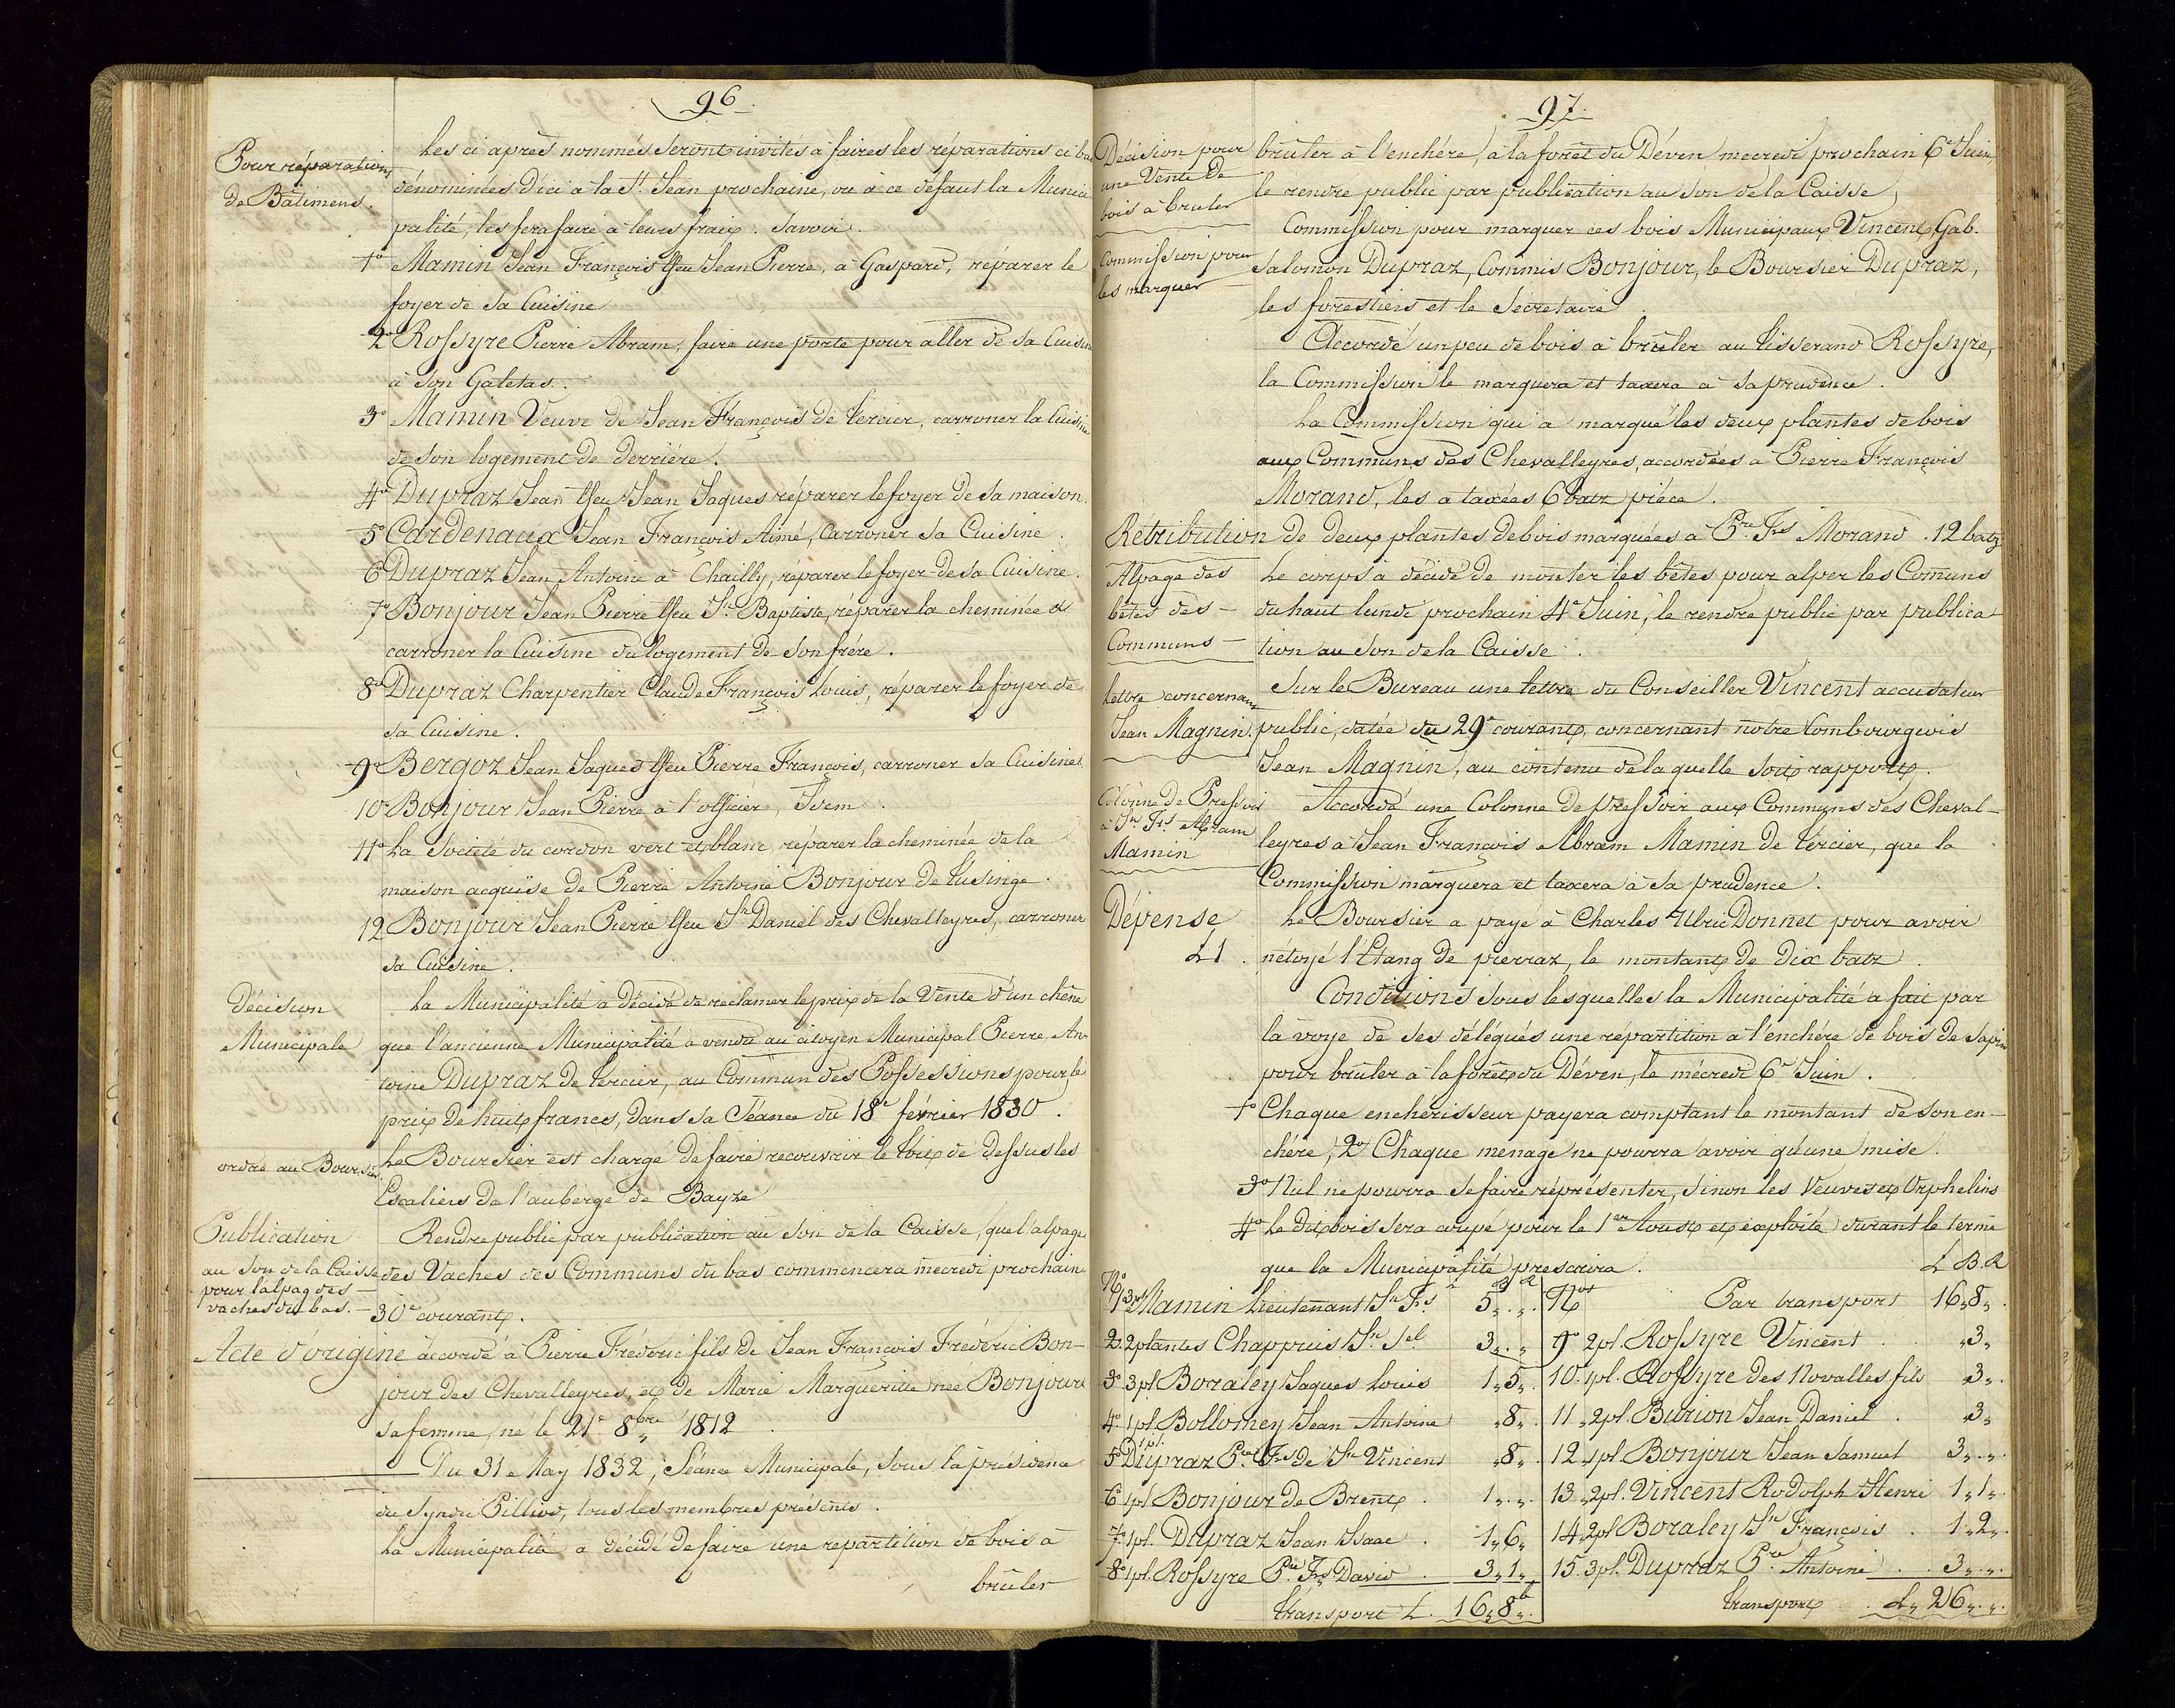 96.
Pour réparations
de Bâtimens.
Les ci après nommés seront invités à faires les réparations ci bas
dénominées d'ici à la St. Jean prochaine, ou à ce défaut la Munici
palité, les fera faire à leurs fraix. Savoir.
1o Mamin Jean François ffeu Jean Pierre, à Gaspard, réparer le
foyer de sa Cuisine
2o Rossyre Pierre Abram, faire une porte pour aller de sa Cuisine
à son Galetas.
3o Mamin Veuve de Jean François de Tercier, carroner la Cuisine
de son logement de derrière.
4o Dupraz Jean ffeu Jean Jaques réparer le foyer de sa maison.
5o Cardenaux Jean François Aimé, Carroner sa Cuisine.
6o Dupraz Jean Antoine à Chailly, réparer le foyer de sa Cuisine.
7o Bonjour Jean Pierre ffeu Jn Baptiste, réparer la cheminée &
carroner la Cuisine du logement de son frère.
8o Dupraz Charpentier Claude François Louis, réparer le foyer de
sa Cuisine.
9o Bergoz Jean Jaques ffeu Pierre François, carroner sa Cuisine.
10o Bonjour Jean Pierre à l'officier, Idem.
11o La Société du cordon vert et blanc, réparer la cheminée de la
maison acquise de Pierre Antoine Bonjour de Tusinge.
12 Bonjour Jean Pierre ffeu Jn Daniel des Chevalleyres, carroner
sa Cuisine.
Décision
Municipale
La Municipalité a décidé de reclamer le prix de la Vente d'un chêne
que l'ancienne Municipalité a vendu au citoyen Municipal Pierre An-
toine Dupraz de Tercier, au Commun des Possessions pour le
prix de huit francs, dans sa Séance du 18e février 1830.
ordre au Boursier
Le Boursier est chargé de faire recouvrir le toit de dessus les
Escaliers de l'auberge de Bayze
Publication
au Son de la Caisse
pour l'alpag des
vaches du bas.
Rendre public par publication au Son de la Caisse, que l'alpage
des Vaches des Communs du bas commencera mécredi prochain
30e courant.
Acte d'origine accordé à Pierre Fréderic fils de Jean François Fréderic Bon-
jour des Chevalleyres, et de Marie Marguerite née Bonjour
sa femme, né le 21e 8bre 1812.
Du 31e May 1832, Séance Municipale, sous la présidence
du Syndic Pilliod, tous les membres présents.
La Municipalité a décidé de faire une repartition de bois à
brûler
97.
Décision pour
une Vente de
bois à bruler
brûler à l'enchére, à la forêt du Déven mecredi prochain 6e Juin,
le rendre public par publication au Son de la Caisse,
Commission pour
les marquer
Commission pour marquer ces bois Municipaux Vincent, Gab.
Salomon Dupraz, Commis Bonjour, le Boursier Dupraz,
les forestiers et le Secretaire.
Accordé un peu de bois à brûler au Tisserand Rossyre,
la Commission le marquera et taxera à sa prudence.
La Commission qui a marqué les deux plantes de bois
aux Communs des Chevalleyres, accordées à Pierre François
Morand, les a taxées 6 batz pièce.
Retribution de deux plantes de bois marquées à Pre. Frs Morand. 12 batz
Alpage des
bêtes des
Communs
Le corps a décidé de monter les bêtes pour alper les Comuns
du haut lundi prochain 4e Juin, le rendre public par publica-
tion au Son de la Caisse.
Lettre concernant
Jean Magnin.
Sur le Bureau une lettre du Conseiller Vincent accusateur
public, datée du 29e courant, concernant notre Combourgeois
Jean Magnin, au contenu de laquelle soit rapport.
Colonne de Pressoir
à Jn Frs Abram
Mamin
Accordé une Colonne de pressoir aux Communs des Cheval-
leyres à Jean François Abram Mamin de Tercier, que la
Commission marquera et taxera à sa prudence.
Dépense
L 1.
Le Boursier a payé à Charles Ulric Donnet pour avoir
nétoyé l'Etang de pierraz, le montant de dix batz.
Conditions sous lesquelles la Municipalité a fait par
la voye de ses délégués une répartition à l'enchére de bois de sapin
pour brûler à la forêt du Déven, le mécredi 6e Juin.
1o Chaque encherisseur payera comptant le montant de son en-
chére, 2o Chaque menage ne pourra avoir qu'une mise.
3o Nul ne pourra se faire réprésenter, sinon les Veuves et Orphelins
4o Le dit bois sera coupé pour le 1er Aoust et exploité durant le terme
que la Municipalité prescrira. L B. R
No
1o 3pl Mamin Lieutenant Jn Frs 5 „ . „
2. 2plantes Chappuis Jn Sel 3 „ . „
3o 3pl Boraley Jaques Louis 1 „ 5 „
4o 1pl. Bollomey Jean Antoine „ 8 „
5o 1pl. Dupraz Pre Frs de Jn Vincent „ 8 „
6 1pl Bonjour de Brent. 1 „ . „
7o 1pl. Dupraz Jean Isaac. 1 „ 6 „
8o 1pl. Rossyre Pre Frs David. 3 „ 1 „
transport L. 16 „ 8 „
Nos Par transport 16 „ 8 „
9o 2pl. Rossyre Vincent. „ 3 „
10. 1pl. Rossyre des Novalles fils „ 3 „
11 „ 2pl. Burion Jean Daniel. „ 3 „
12 1pl. Bonjour Jean Samuel 3 „ . „
13 „ 2pl. Vincent Rodolph Henri 1 „ 1 „
14 „ 2pl Boraley Jn François. 1 „ 2 „
15. 3pl. Dupraz Pre. Antoine. 3 „ . „
transport L „ 26 „ . „